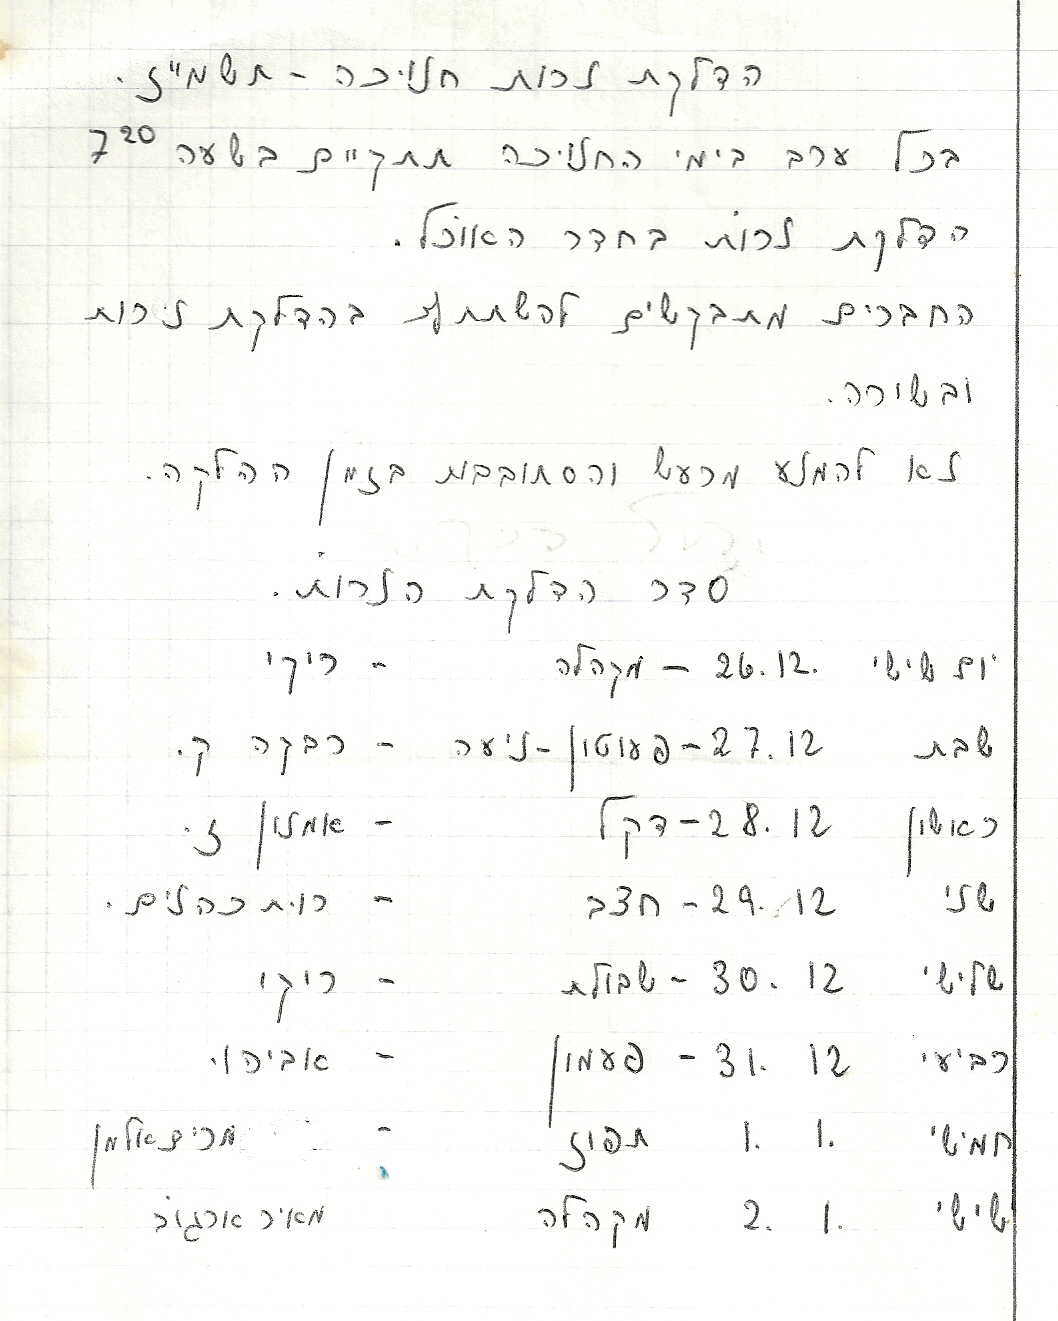 הדלקת נרות חנוכה - תשמ"ז.
בכל ערב בימי החנוכה תתקיים בשעה 7²⁰
הדלקת נרות בחדר האוכל.
החברים מתבקשים להשתתף בהדלקת נרות
ובשירה.
נא להמנע מרעש והסתובבות בזמן ההדלקה.
סדר הדלקת הנרות.
יום שישי 26.12. - מקהלה - ריקי
שבת 27.12 - פעוטון - ניעה - רבקה ק.
ראשון 28.12 - דקל - אמנון ז.
שני 29.12 - חצב - רות כהנים.
שלישי 30.12 - שבולת - ריקי
רביעי 31.12 - פעמון - אביהו.
חמישי 1.1. תפוז - מרים אלמן
שישי 2.1. מקהלה מאיר ארגוב